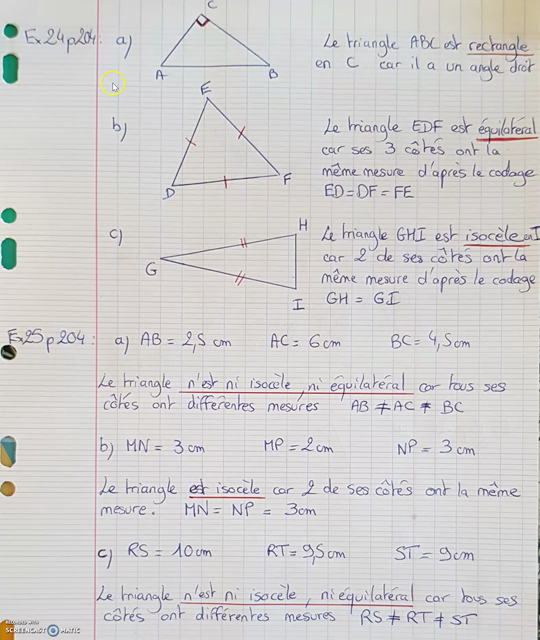 Ex 24 p 204 : a)
C
A
B
Le triangle ABC est rectangle
en C car il a un angle droit
b)
E
D
F
Le triangle EDF est équilatéral
car ses 3 côtés ont la
même mesure d'après le codage
ED = DF = FE
c)
H
G
I
Le triangle GHI est isocèle en I
car 2 de ses côtés ont la
même mesure d'après le codage
GH = GI
Ex 25 p 204 : a) AB = 2,5 cm AC = 6 cm BC = 4,5 cm
Le triangle n'est ni isocèle, ni équilatéral car tous ses
côtés ont différentes mesures AB ≠ AC ≠ BC
b) MN = 3 cm MP = 2 cm NP = 3 cm
Le triangle est isocèle car 2 de ses côtés ont la même
mesure. MN = NP = 3cm
c) RS = 10 cm RT = 9,5 cm ST = 9 cm
Le triangle n'est ni isocèle, ni équilatéral car tous ses
côtés ont différentes mesures RS ≠ RT ≠ ST
RECORDED WITH
SCREENCAST MATIC